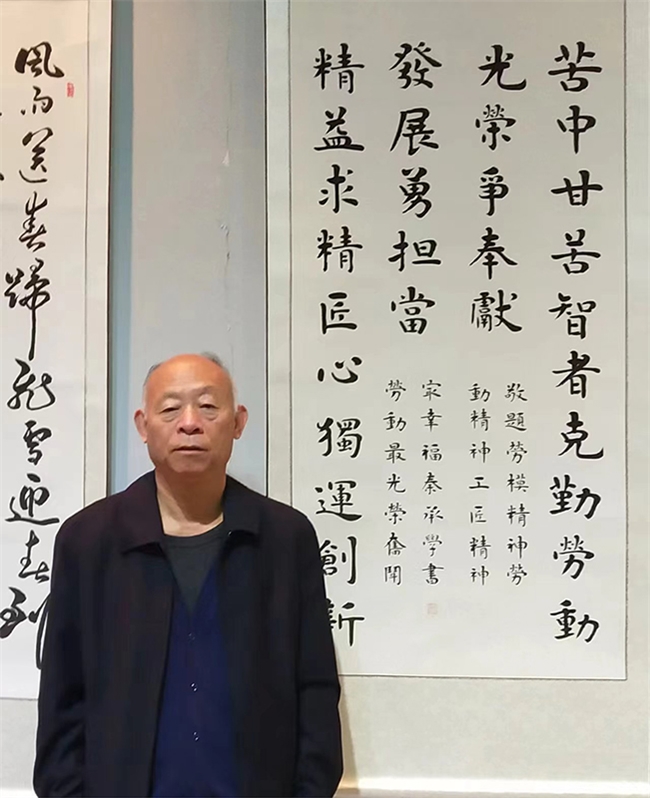 苦中甘苦智者克勤勞動
光榮爭奉獻
發展勇担當
精益求精匠心獨運創新
敬題勞模精神勞
動精神工匠精神
家幸福秦承學書
勞動最光榮
風雨送春歸飛雪迎春到